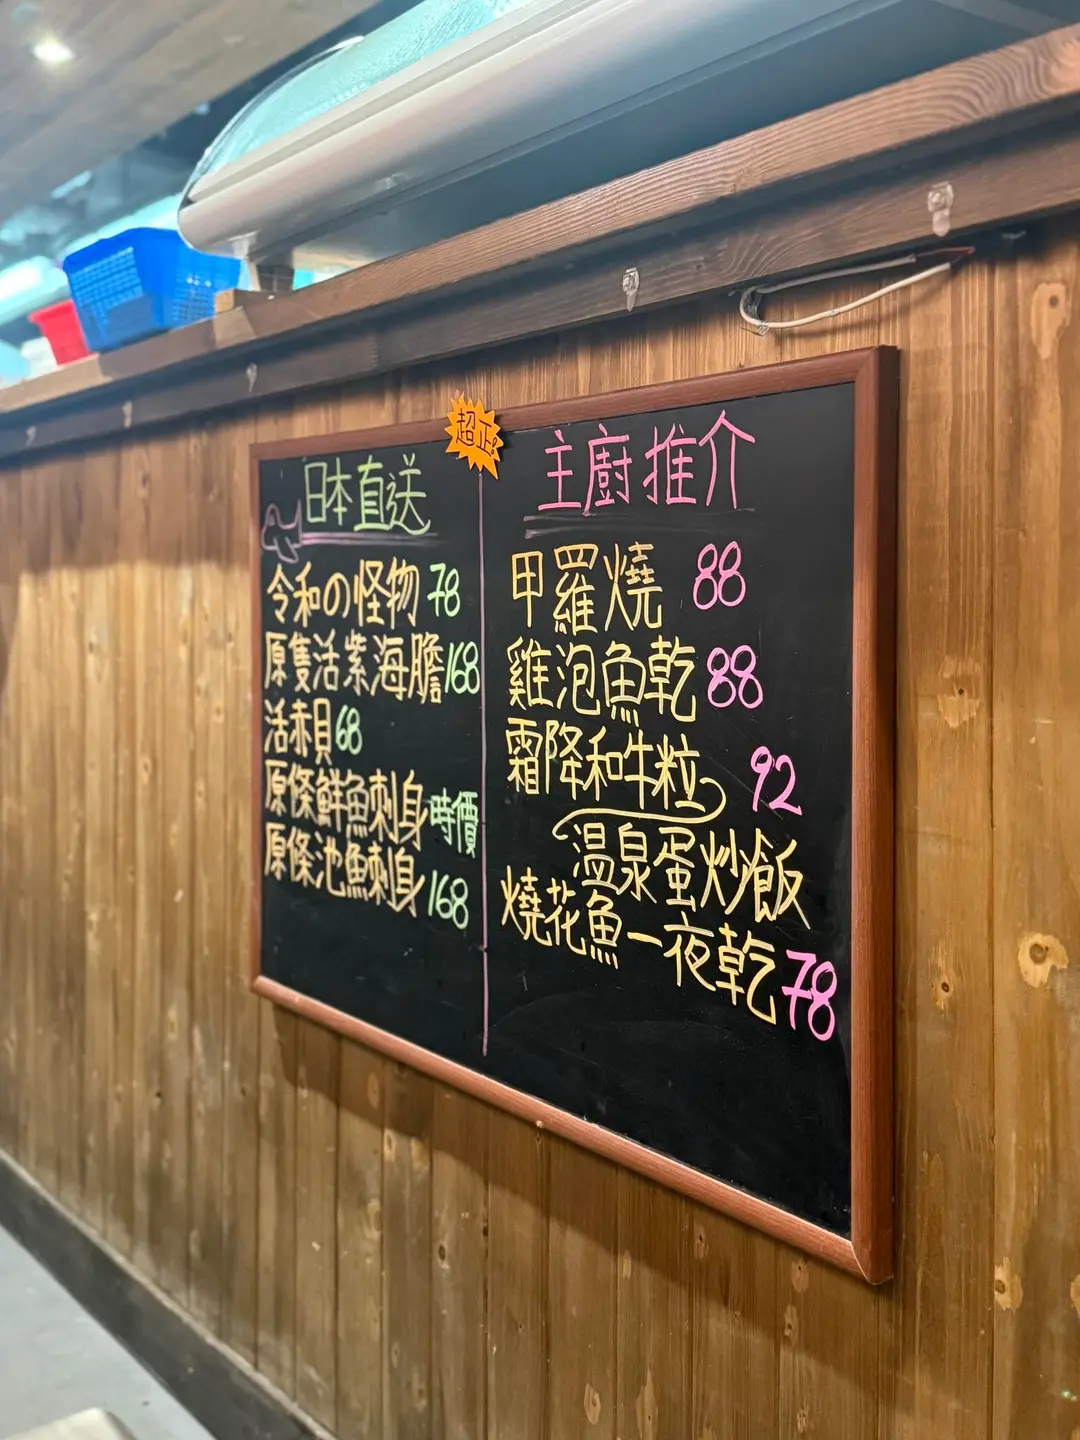 超正!
日本直送
令和の怪物 78
原隻活紫海膽 168
活赤貝 68
原條鮮魚刺身 時價
原條池魚刺身 168
主廚推介
甲羅燒 88
雞泡魚乾 88
霜降和牛粒 92
溫泉蛋炒飯
燒花魚一夜乾 78